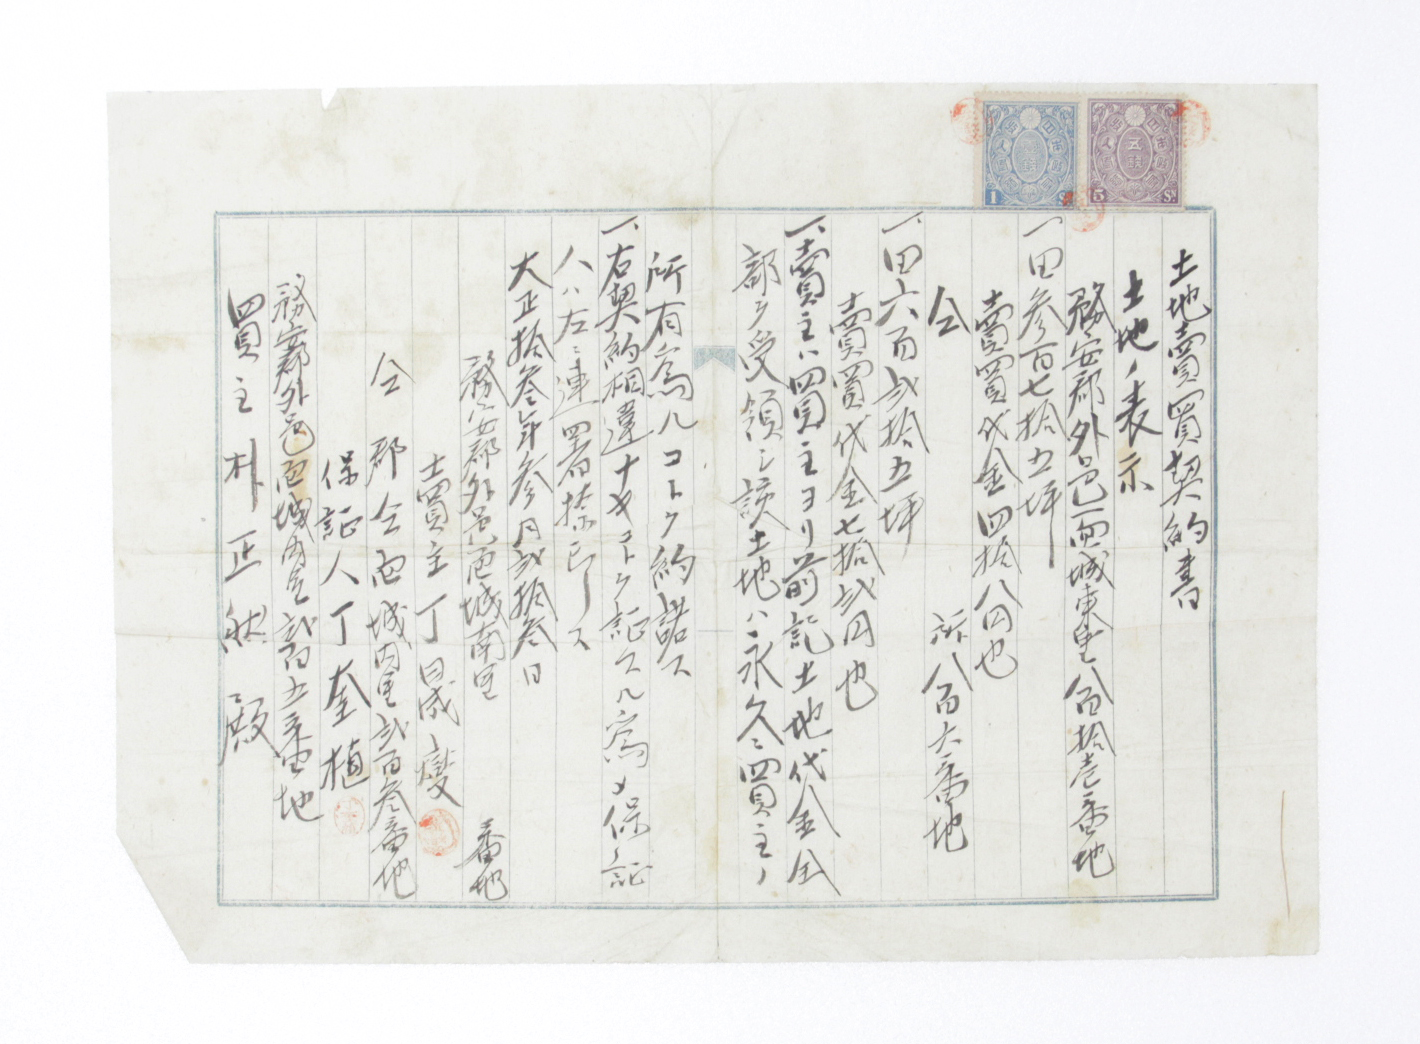 土地賣買契約書
土地ノ表示
務安郡外邑面城東里八百拾壱番地
一、田参百七拾五坪
賣買代金四拾八円也
仝 所八百六番地
一、田六百弐拾五坪
賣買代金七拾弐円也
一、賣主ハ買主ヨリ前記土地代金全
部ヲ受領シ該土地ハ永久ニ買主ノ
所有為ルコトヲ約諾ス
一、右契約相違ナキコトヲ証スル為メ保証
人ハ左ニ連署捺印ス
大正拾参年参月弐拾参日
務安郡外邑面城南里 番地
賣主丁日成燮
仝郡仝面城内里弐百参番地
保証人丁奎植
務安郡外邑面城内里弐百五番地
買主朴正秋殿
1 Sn
5 Sn
五銭